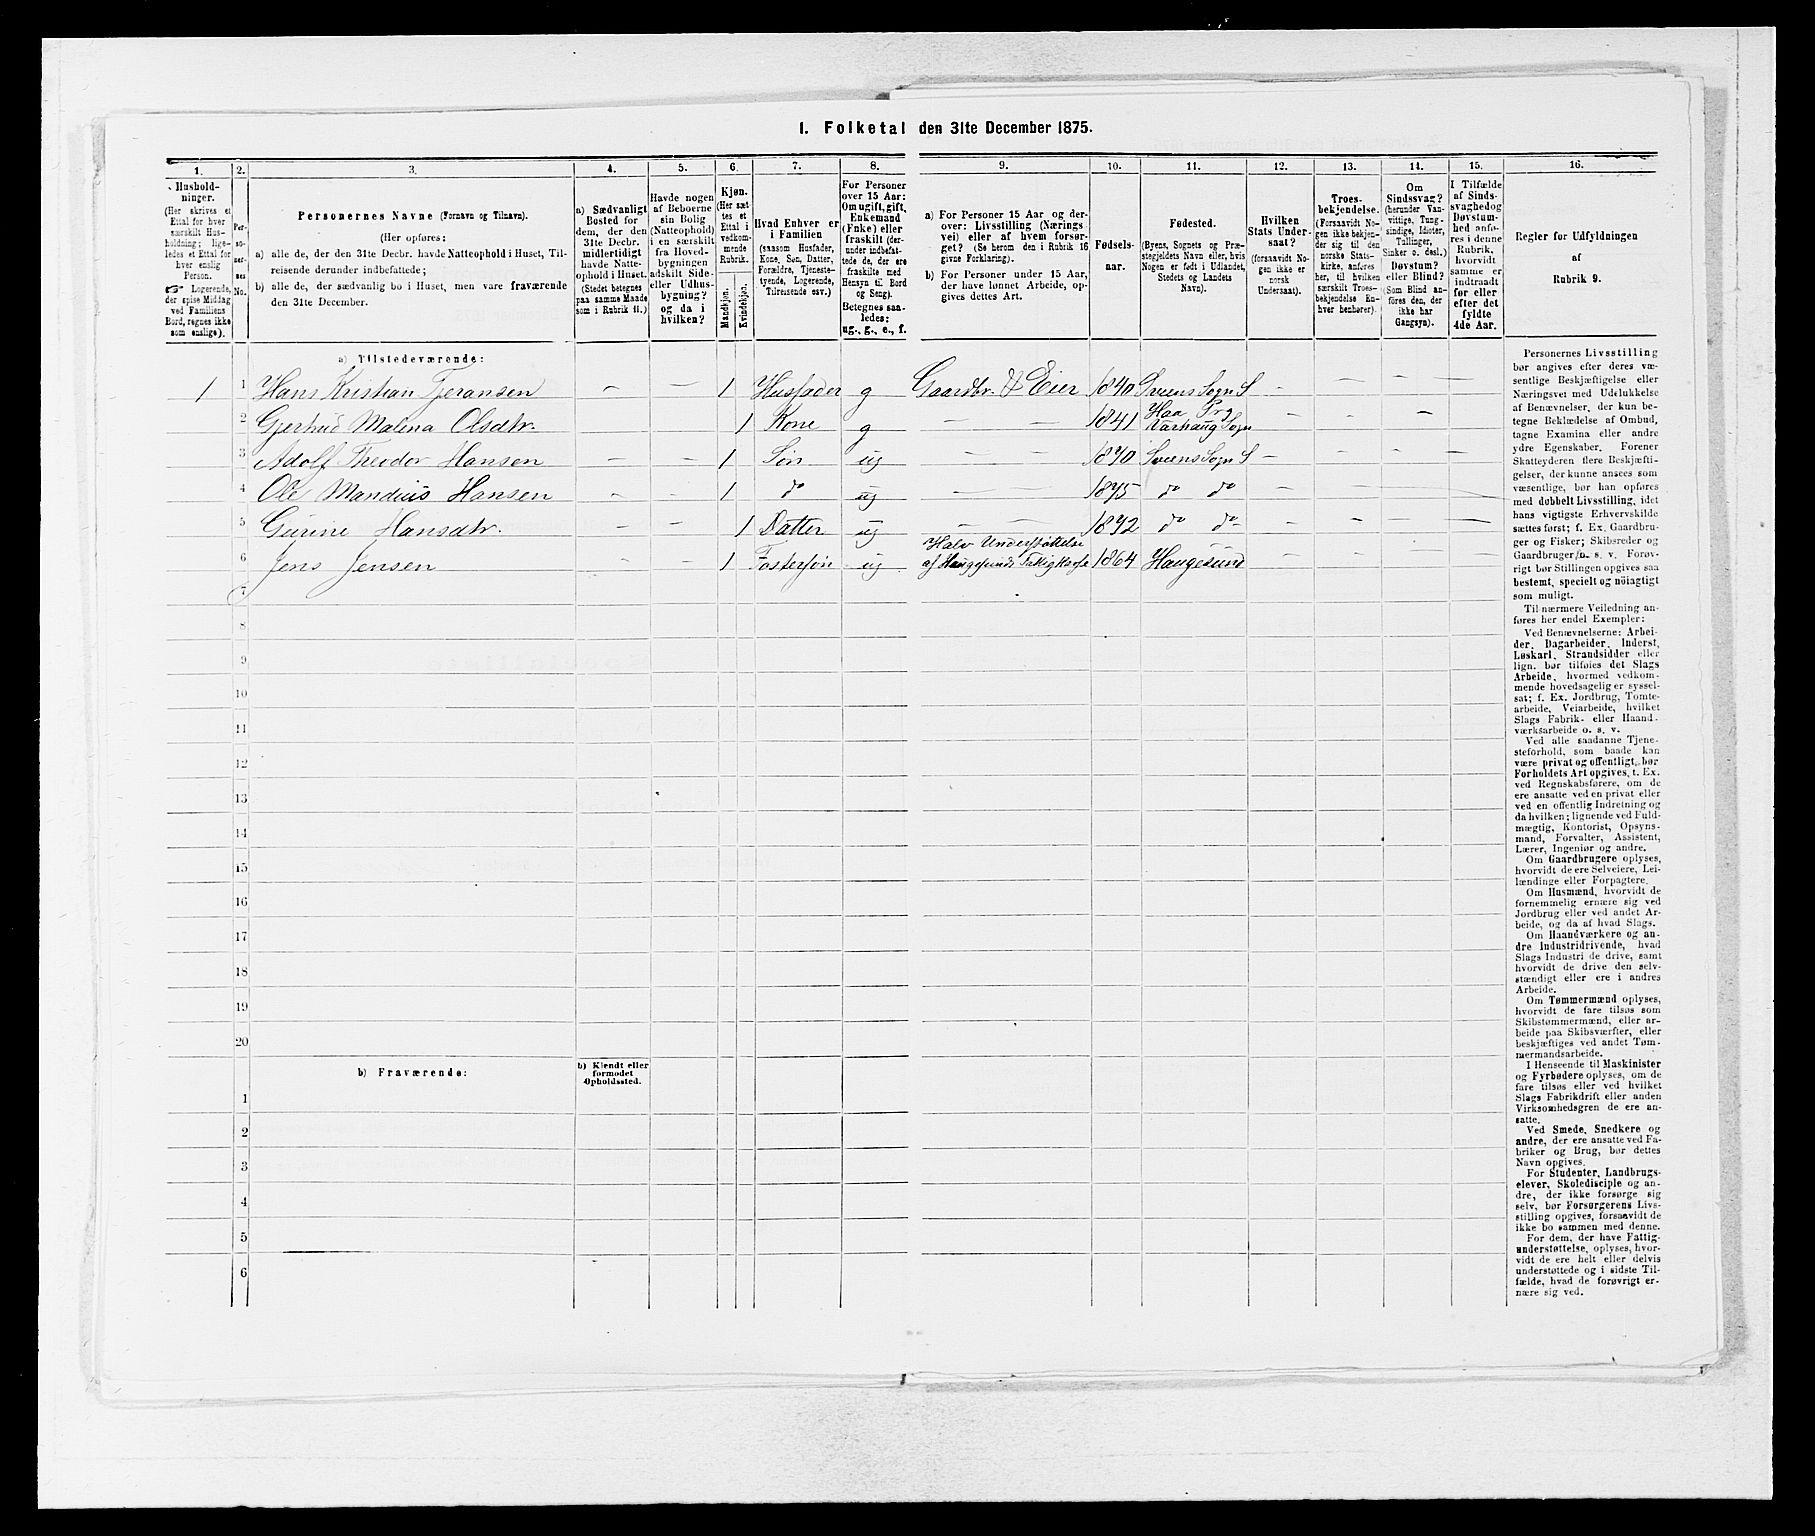 1. Folketal den 31te December 1875.
1.
2.
3.
4.
5.
6.
7.
8.
9.
10.
11.
12.
13.
14.
15.
16.
Hushold-
ninger.
(Her skrives et
Ettal for hver
særskilt Hus-
holdning; lige-
ledes et Ettal for
hver enslig
Person.
☞ Logerende,
der spise Middag
ved Familiens
Bord, regnes ikke
som enslige).
Per-
so-
ner-
nes
No.
Personernes Navne (Fornavn og Tilnavn).
(Her opføres:
a) alle de, der den 31te Decbr. havde Natteophold i Huset, Til-
reisende derunder indbefattede;
b) alle de, der sædvanlig bo i Huset, men vare fraværende
den 31te December.
a) Sædvanligt
Bosted for
dem, der den
31te Decbr.
midlertidigt
havde Natte-
ophold i Huset.
(Stedet betegnes
paa samme Maade
som i Rubrik 11.)
Havde nogen
af Beboerne
sin Bolig
(Natteophold)
i en særskilt
fra Hoved-
bygningen
adskilt Side-
eller Udhus-
bygning?
og da i
hvilken?
Kjøn.
(Her sæt-
tes et
Ettal i
vedkom-
mende
Rubrik.
Mandkjøn.
Kvindekjøn.
Hvad Enhver er
i Familien
(saasom Husfader,
Kone, Søn, Datter,
Forældre, Tjeneste-
tyende, Logerende,
Tilreisende osv.)
For Personer
over 15 Aar:
Om ugift, gift,
Enkemand
(Enke) eller
fraskilt (der-
under indbefat-
tede de, der ere
fraskilte med
Hensyn til Bord
og Seng).
Betegnes saa-
ledes:
ug., g., e., f.
a) For Personer 15 Aar og der-
over: Livsstilling (Nærings
vei) eller af hvem forsør-
get? (Se herom den i Rubrik 16
givne Forklaring).
b) For Personer under 15 Aar,
der have lønnet Arbeide, op-
gives dettes Art.
Fødsels-
aar.
Fødested.
(Byens, Sognets og Præ-
stegjeldets Navn eller, hvis
Nogen er født i Udlandet,
Stedets og Landets
Navn).
Hvilken
Stats Under-
saat?
(forsaavidt No-
gen ikke er
norsk
Undersaat).
Troes-
bekjendelse.
(Forsaavidt No-
gen ikke bekjen-
der sig til den
norske Stats-
kirke, anføres
her, til hvilken
særskilt Troes-
bekjendelse En-
hver henhører).
Om
Sindssvag?
(herunder Van-
vittige, Tung-
sindige, Idioter,
Tullinger,
Sinker o. desl.)
Døvstum?
eller Blind?
(Som Blind an-
føres den, der
ikke har
Gangsyn).
I Tilfælde
af Sinds-
svaghed og
Døvstum-
hed anfø-
res i denne
Rubrik,
hvorvidt
samme er
indtraadt
før eller
efter det
fyldte
4de Aar.
Regler for Udfyldningen
af
Rubrik 9.
a) Tilstedeværende:
1 1 Hans Kristian Tjeransen – – 1 Husfader g Gaardbr. & Eier 1840 Sveens Sogn S –
2 Gjertrud Malena Olsdtr. 1 Kone g – – 1841 Haa Prg Varhaug Sogn – – –
3 Adolf Theodor Hansen – – 1 Søn ug – – 1870 Sveens Sogn S – – – –
4 Ole Mandius Hansen – – 1 do ug – – 1875 do do – – – –
5 Gurine Hansdtr. – – 1 Datter ug – – 1872 do do – – – –
6 Jens Jensen – – 1 Fostersøn ug Halv Understøttelse af Haugesunds Fattigkasse 1864 Haugesund – – – –
7
8
9
10
11
12
13
14
15
16
17
18
19
20
b) Fraværende:
b) Kjendt eller
formodet
Opholdssted.
1
2
3
4
5
6
Personernes Livsstilling
bør angives efter deres væ-
sentlige Beskjæftigelse eller
Næringsvei med Udelukkelse
af Benævnelser, der kun be-
tegne Beklædelse af Ombud,
tagne Examina eller andre
ydre Egenskaber. Forener
Skatteyderen flere Beskjæfti-
gelser, der kunne ansees som
væsentlige, bør han opføres
med dobbelt Livsstilling, idet
hans vigtigste Erhvervskilde
sættes først; f. Ex. Gaardbru-
ger og Fisker; Skibsreder og
Gaardbruger o. s. v. Forøv-
rigt bør Stillingen opgives saa
bestemt, specielt og nöiagtigt
som muligt.
Til nærmere Veiledning an-
føres her endel Exempler:
Ved Benævnelserne: Arbei-
der, Dagarbeider, Inderst,
Løskarl, Strandsidder eller
lign. bør tilføies det Slags
Arbeide, hvormed vedkom-
mende hovedsagelig er syssel-
sat; f. Ex. Jordbrug, Tomte-
arbeide, Veiarbeide, hvilket
Slags Fabrik- eller Haand-
værksarbeide o. s. v.
Ved alle saadanne Tjene-
steforhold, som baade kan
være privat og offentligt, bør
Forholdets Art opgives, t. Ex.
ved Regnskabsførere, om de
ere ansatte ved en privat eller
ved en offentlig Indretning og
da hvilken; lignende ved Fuld-
mægtig, Kontorist, Opsyns-
mand, Forvalter, Assistent,
Lærer, Ingeniør og andre.
Om Gaardbrugere oplyses,
hvorvidt de ere Selveiere, Lei-
lændinge eller Forpagtere.
Om Husmænd, hvorvidt de
fornemmelig ernære sig ved
Jordbrug eller ved andet Ar-
beide, og da af hvad Slags.
Om Haandværkere og an-
dre Industridrivende, hvad
Slags Industri de drive, samt
hvorvidt de drive den selv-
stændigt eller ere i andres
Arbeide.
Om Tømmermænd oplyses,
hvorvidt de fare tilsøs som
Skibstømmermænd, eller ar-
beide paa Skibsværfter, eller
beskjæftiges ved andet Tøm-
mermandsarbeide.
I Henseende til Maskinister
og Fyrbødere oplyses, om de
fare tilsøs eller ved hvilket
Slags Fabrikdrift eller anden
Virksomhedsgren de ere an-
satte.
Ved Smede, Snedkere og
andre, der ere ansatte ved Fa-
briker og Brug, bør dettes
Navn opgives.
For Studenter, Landbrugs-
elever, Skoledisciple og an-
dre, der ikke forsørge sig
selv, bør Forsørgerens Livs-
stilling opgives, forsaavidt de
ikke bo sammen med denne.
For dem, der have Fattig-
understøttelse, oplyses, hvor-
vidt de ere helt eller delvis
understøttede og i sidste Til-
fælde, hvad de forøvrigt er-
nære sig ved.